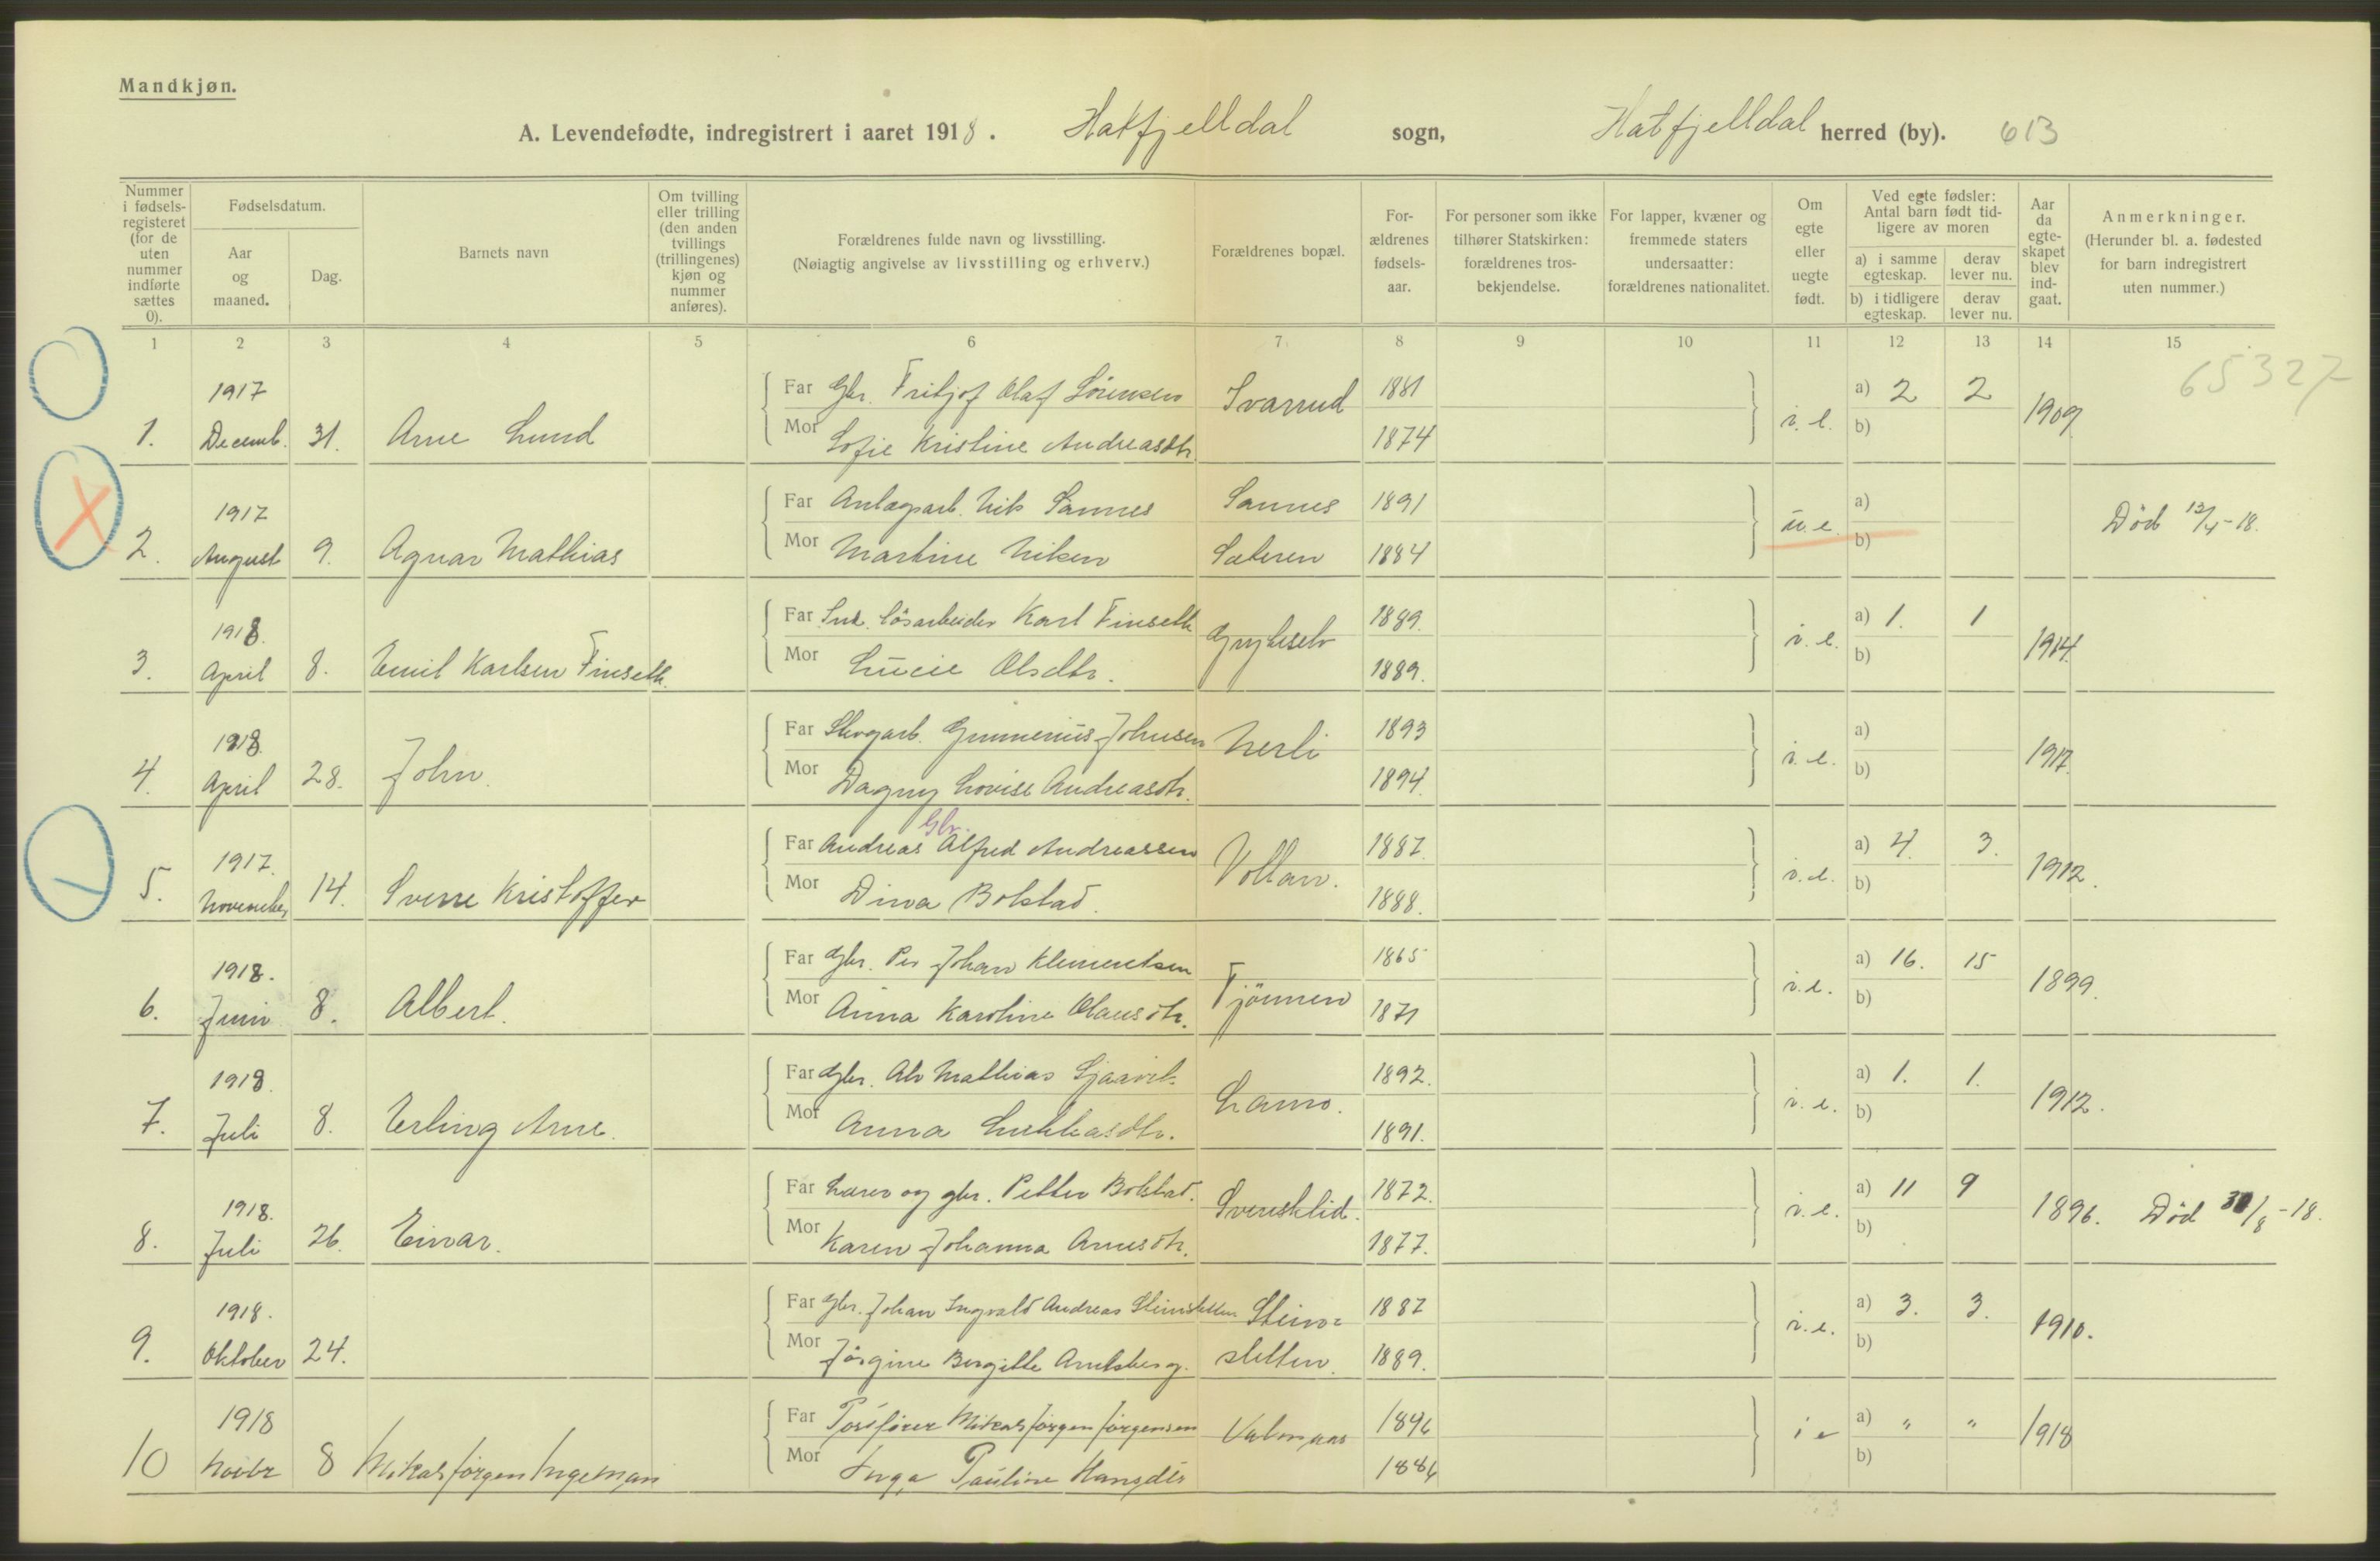 Mandkjøn.
A. Levendefødte, indregistrert i aaret 1918. Hatfjelldal sogn, Hatfjelldal herred (by). 613
Nummer i fødsels-registeret (for de uten nummer indførte sættes 0).
Fødselsdatum.
Aar og maaned.
Dag.
Barnets navn
Om tvilling eller trilling (den anden tvillings (trillingenes) kjøn og nummer anføres).
Forældrenes fulde navn og livsstilling.
(Nøiagtig angivelse av livsstilling og erhverv.)
Forældrenes bopæl.
For-ældrenes fødsels-aar.
For personer som ikke tilhører Statskirken: forældrenes tros-bekjendelse.
For lapper, kvæner og fremmede staters undersaatter: forældrenes nationalitet.
Om egte eller uegte født.
Ved egte fødsler: Antal barn født tid-ligere av moren
a) i samme egteskap.
derav lever nu.
b) i tidligere egteskap.
derav lever nu.
Aar da egte-skapet blev ind-gaat.
Anmerkninger.
(Herunder bl. a. fødested for barn indregistrert uten nummer.)
1 2 3 4 5 6 7 8 9 10 11 12 13 14 15
65327
1917
1. Decemb. 31. Arne Lund
Far Gbr. Fritjof Olaf Sörensen Svarrud 1881 i. e. a) 2 2 1909
Mor Sofie Kristine Andreasdtr 1874 b)
1917
2. August 9. Agnar Mathias
Far Anlægsarb. Nils Sannes Sannes 1891 u. e. a) Död 12/4-18.
Mor Martine Nilsen Sæteren 1884 b)
1918.
3. April 8. Emil Karlsen Finseth.
Far Lösarbeider Karl Finseth 1889. i. e. a) 1. 1 1914.
Mor Lucie Olsdtr. 1889. b)
1918.
4. April 28. John.
Far Skogarb. Gunnerius Johnsen Nerli 1893 i. e. a) 1917.
Mor Dagny Lovise Andreasdtr. 1894. b)
1917. Gbr.
5. November 14. Sverre Kristoffer
Far Andreas Alfred Andreassen Vollan. 1887. i. e. a) 4. 3. 1912.
Mor Dina Bolstad. 1888. b)
1918.
6. Juni 8. Albert.
Far Gbr. Per Johan Klemetsen Tjönnen 1865 i. e. a) 16. 15 1899.
Mor Anna Karoline Olausdtr. 1871 b)
1918.
7. Juli 8. Erling Arne.
Far Gbr. Alv Mathias 1892. i. e. a) 1. 1. 1912.
Mor Anna Lukkasdtr. 1891. b)
1918.
8. Juli 26. Einar.
Far Lærer og gbr. Petter Bolstad. Svensklid. 1872. i. e. a) 11 9 1896. Död 30/8-18.
Mor Karen Johanna Arnesdtr. 1877. b)
1918.
9. Oktober 24.
Far Gbr. Johan Ingvald Andreas Steinsletten Stein= 1887 i. e. a) 3. 3. 1910.
Mor Jörgine Bergitte Arntsberg. sletten. 1889. b)
1918
10 Novbr 8 Mikal Jörgen Ingeman
Far Postfører Mikal Jörgen Jörgensen 1896 i e a) " " 1918
Mor Inga Pauline Hansdtr 1886 b)